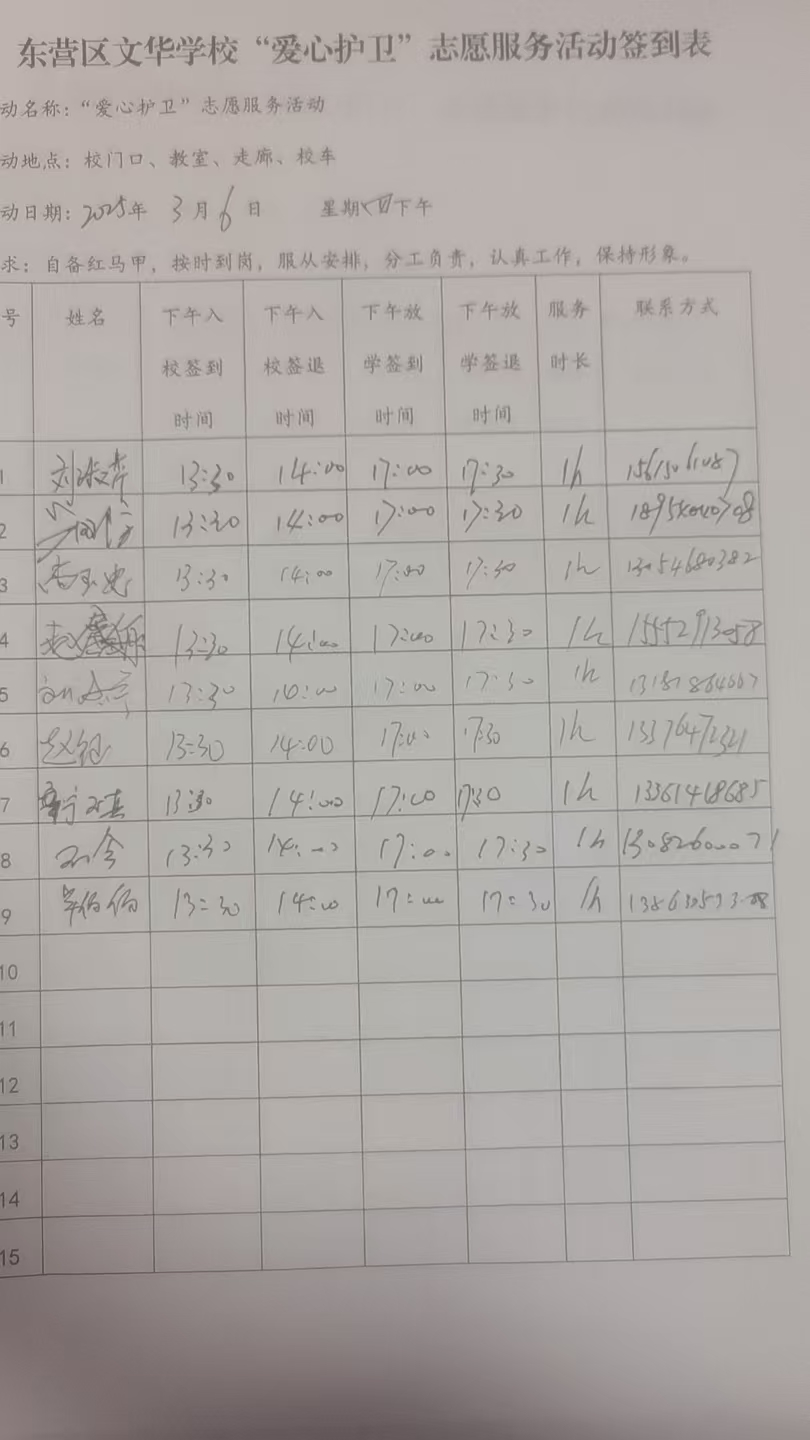 东营区文华学校“爱心护卫”志愿服务活动签到表
动名称：“爱心护卫”志愿服务活动
动地点：校门口、教室、走廊、校车
动日期：2025年 3月6日 星期四下午
求：自备红马甲，按时到岗，服从安排，分工负责，认真工作，保持形象。
号 姓名 下午入校签到时间 下午入校签退时间 下午放学签到时间 下午放学签退时间 服务时长 联系方式
1 13:30 14:00 17:00 17:30 1h
2 13:30 14:00 17:00 17:30 1h
3 13:30 14:00 17:00 17:30 1h 13054680382
4 13:30 14:00 17:00 17:30 1h 15552913058
5 13:30 14:00 17:00 17:30 1h
6 赵钰 13:30 14:00 17:00 17:30 1h 13376472321
7 13:30 14:00 17:00 17:30 1h 13361418685
8 13:30 14:00 17:00 17:30 1h 13082600071
9 13:30 14:00 17:00 17:30 1h
10
11
12
13
14
15